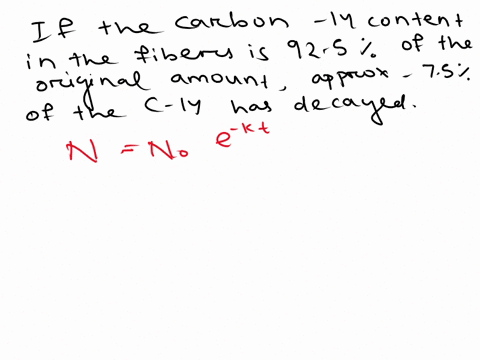 If the carbon -14 content
in the fibers is 92.5% of the
original amount, approx - 7.5%
of the C-14 has decayed.
N = N₀ e^-kt